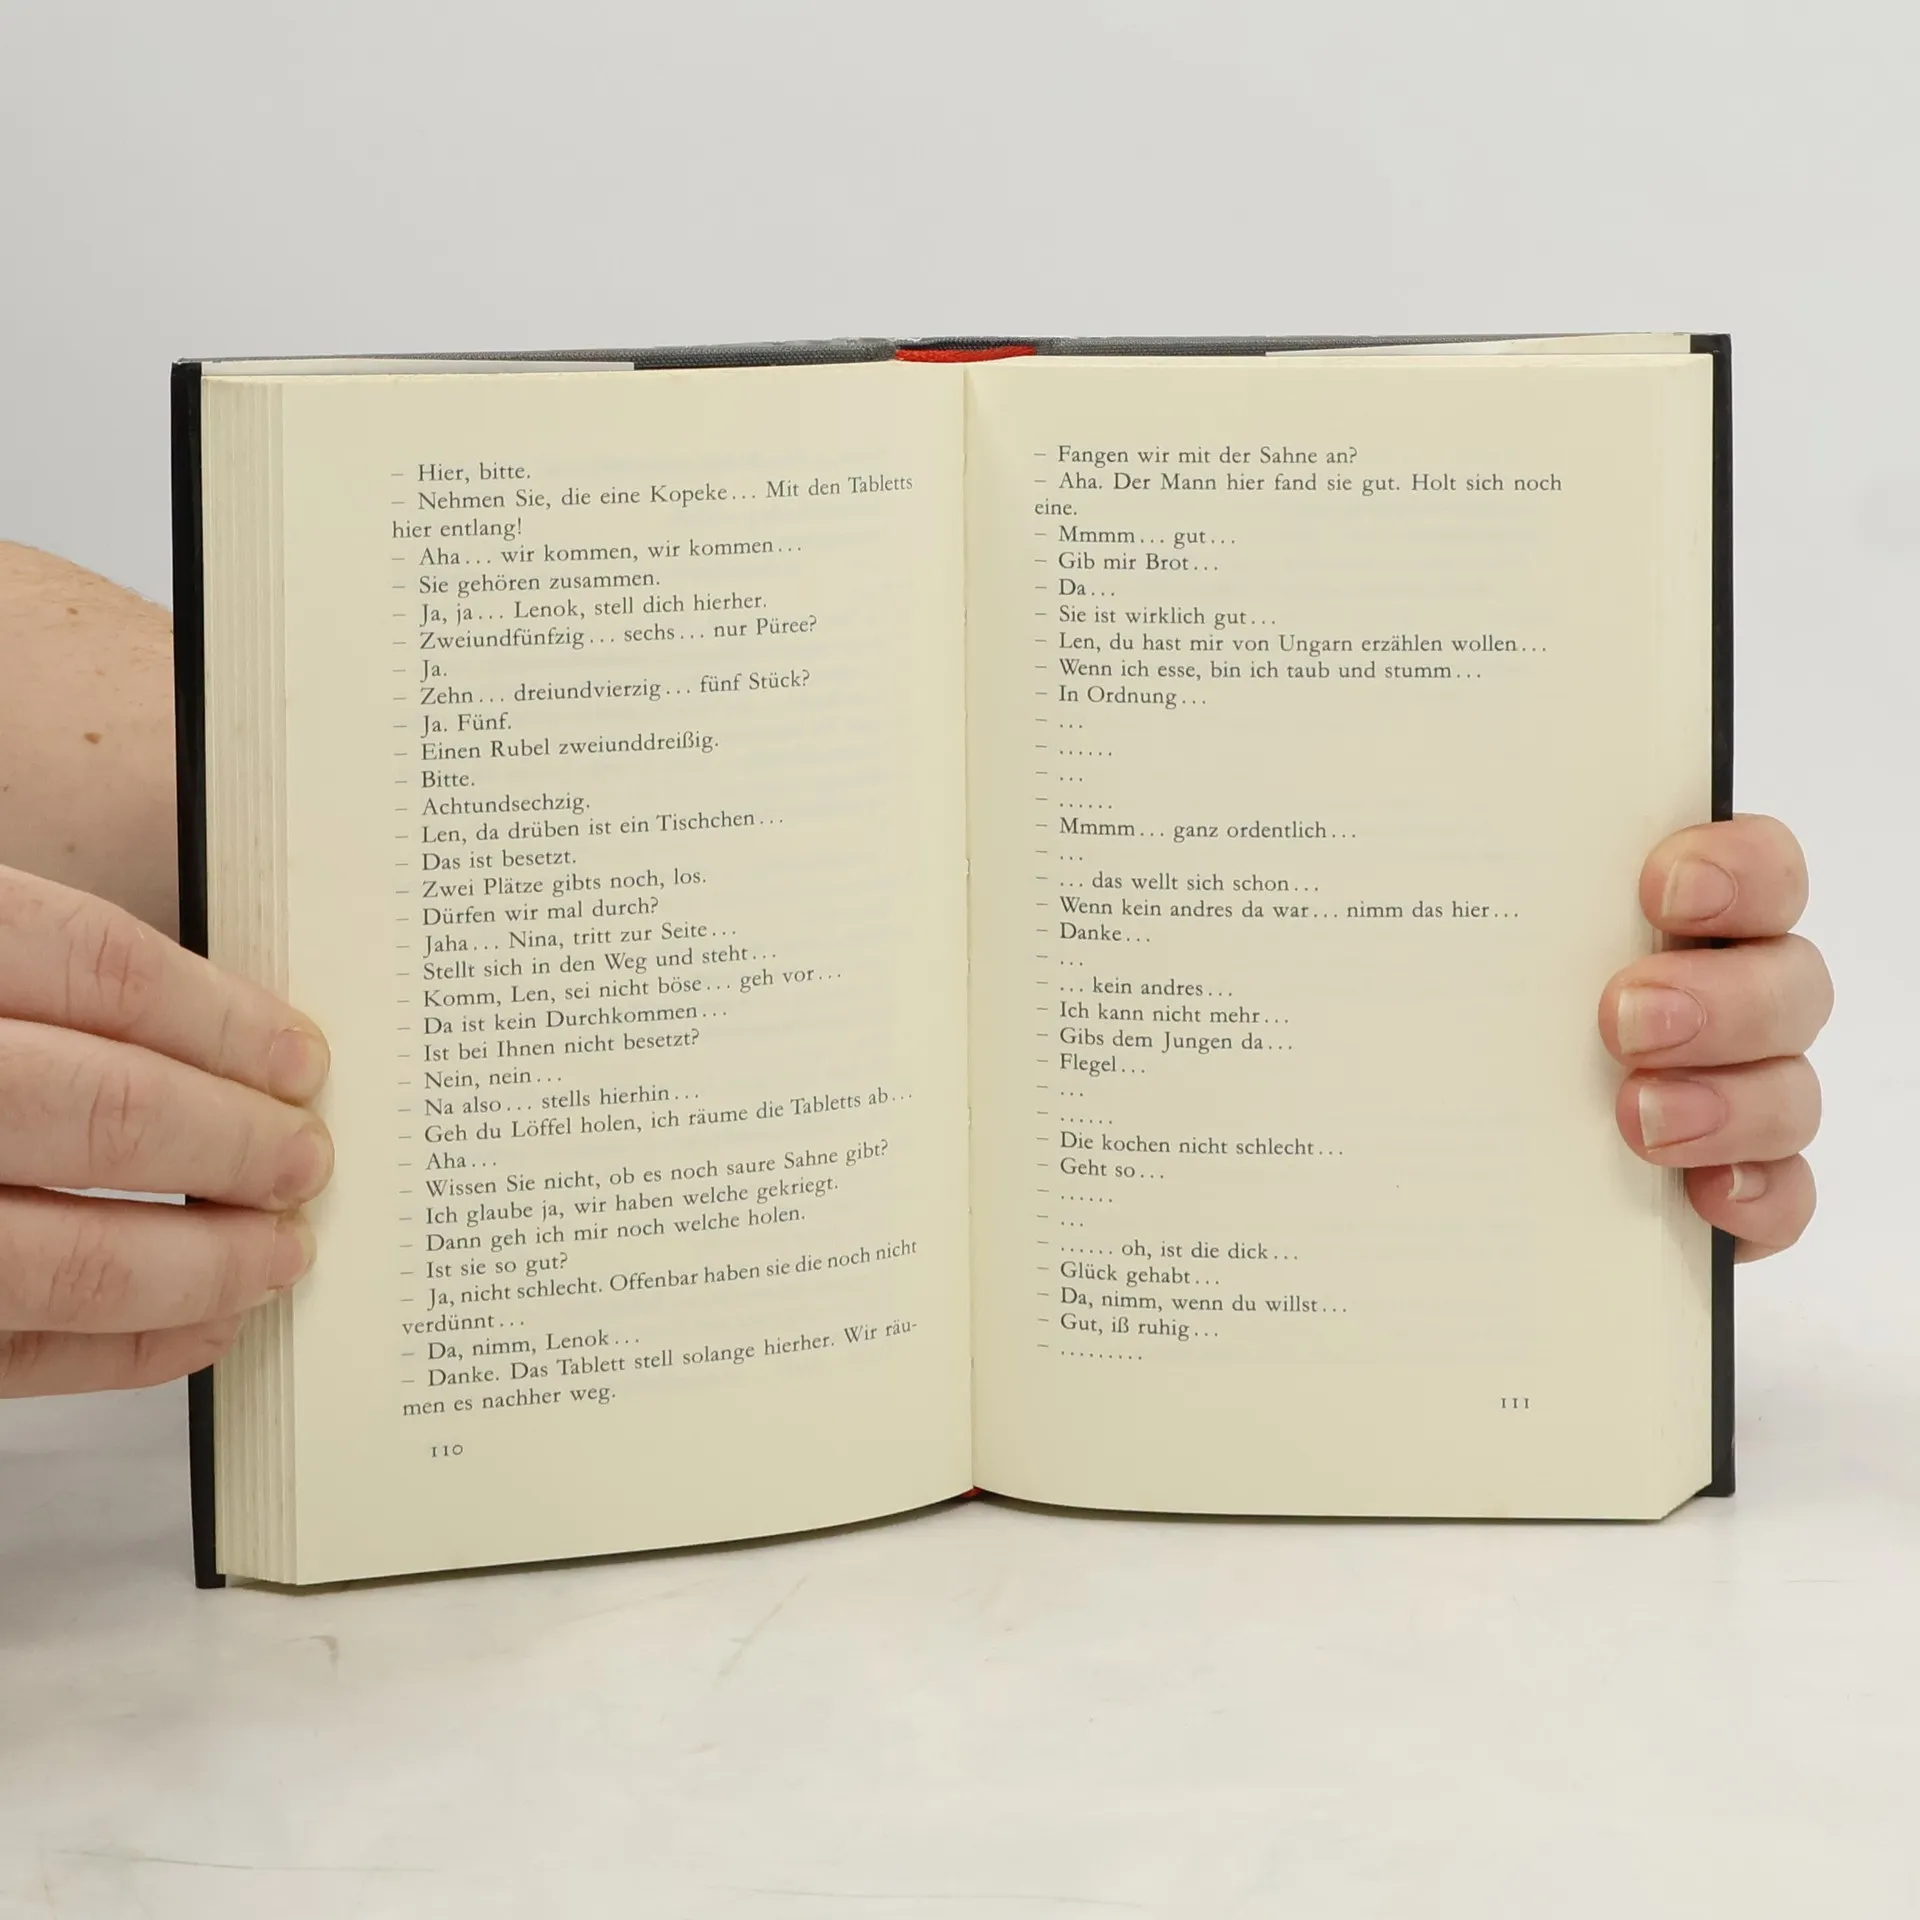 – Hier, bitte.
– Nehmen Sie, die eine Kopeke... Mit den Tabletts
hier entlang!
– Aha... wir kommen, wir kommen...
– Sie gehören zusammen.
– Ja, ja... Lenok, stell dich hierher.
– Zweiundfünfzig... sechs... nur Püree?
– Ja.
– Zehn... dreiundvierzig... fünf Stück?
– Ja. Fünf.
– Einen Rubel zweiunddreißig.
– Bitte.
– Achtundsechzig.
– Len, da drüben ist ein Tischchen...
– Das ist besetzt.
– Zwei Plätze gibts noch, los.
– Dürfen wir mal durch?
– Jaha... Nina, tritt zur Seite...
– Stellt sich in den Weg und steht...
– Komm, Len, sei nicht böse... geh vor...
– Da ist kein Durchkommen...
– Ist bei Ihnen nicht besetzt?
– Nein, nein...
– Na also... stells hierhin...
– Geh du Löffel holen, ich räume die Tabletts ab...
– Aha...
– Wissen Sie nicht, ob es noch saure Sahne gibt?
– Ich glaube ja, wir haben welche gekriegt.
– Dann geh ich mir noch welche holen.
– Ist sie so gut?
– Ja, nicht schlecht. Offenbar haben sie die noch nicht
verdünnt...
– Da, nimm, Lenok...
– Danke. Das Tablett stell solange hierher. Wir räu-
men es nachher weg.
110
– Fangen wir mit der Sahne an?
– Aha. Der Mann hier fand sie gut. Holt sich noch
eine.
– Mmmm... gut...
– Gib mir Brot...
– Da...
– Sie ist wirklich gut...
– Len, du hast mir von Ungarn erzählen wollen...
– Wenn ich esse, bin ich taub und stumm...
– In Ordnung...
– ...
– ......
– ...
– ......
– Mmmm... ganz ordentlich...
– ...
– ... das wellt sich schon...
– Wenn kein andres da war... nimm das hier...
– Danke...
– ...
– ... kein andres...
– Ich kann nicht mehr...
– Gibs dem Jungen da...
– Flegel...
– ...
– ......
– Die kochen nicht schlecht...
– Geht so...
– ......
– ...
– ...... oh, ist die dick...
– Glück gehabt...
– Da, nimm, wenn du willst...
– Gut, iß ruhig...
– .........
111